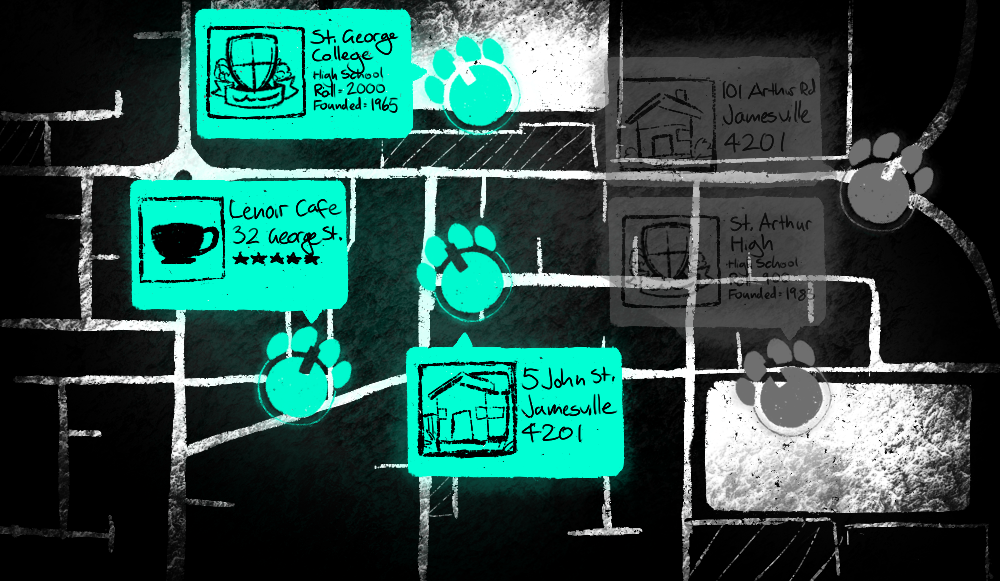 St. George
College
High School
Roll= 2000
Founded= 1965
101 Arthur Rd
Jamesville
4201
Lenoir Cafe
32 George St.
★★★★★
St. Arthur
High
High School
Founded= 1985
5 John St.
Jamesville
4201